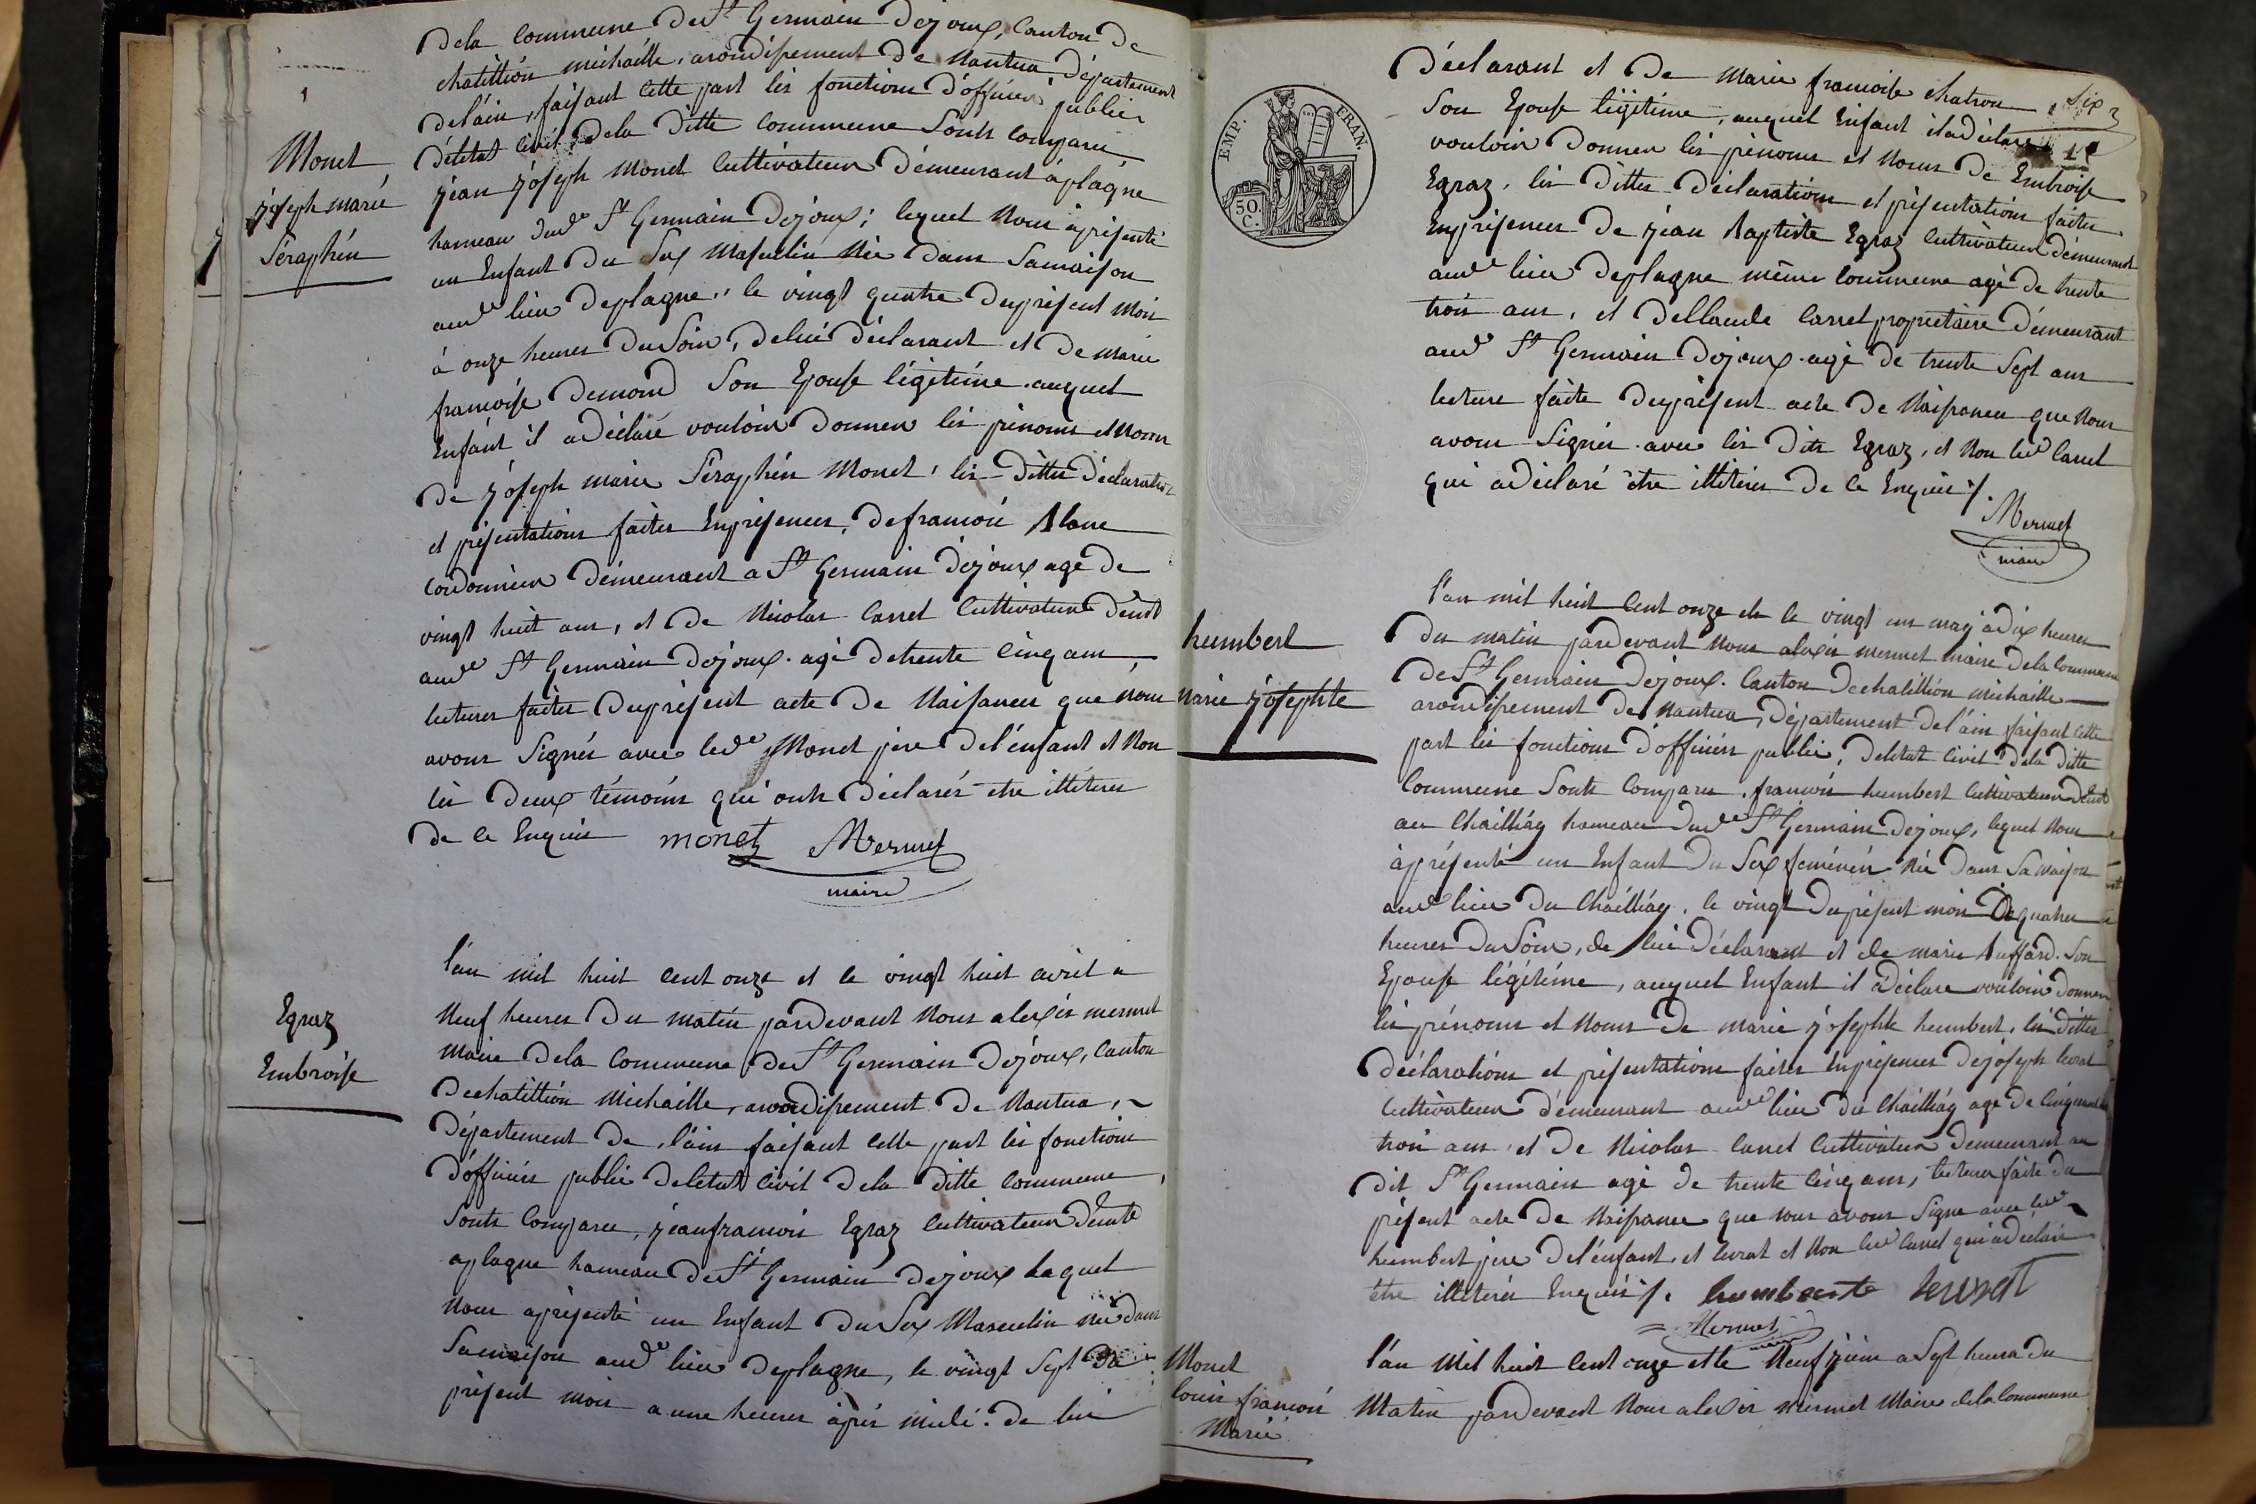 Dela commune de St Germain Dejoux, Canton de
chatillion michaille, arondissement de Nantua, Département
del'ain, faisant cette part les fonctions d'officier public
délétat civil dela ditte commune Sonts comparu
Monet
joseph marie
Séraphin
jean joseph Monet Cultivateur démeurant à plagne
hameau dud St Germain Dejoux; lequel Nous à présenté
un Enfant du Sex Masculin Née dans Samaison
aud lieu deplagne, le vingt quatre duprésent Mois
à onze heures du Soir, delui déclarant et de marie
francoise Demond Son Epouse légitime auquel
Enfant il a déclaré vouloir donner les prénoms et Noms
de joseph marie Séraphin Monet, les dittes déclaration
et présentations faites Enprésences, de francois Blanc
Cordonnier démeurant a St Germain dejoux agé de
vingt huit ans, et de Nicolas Carret Cultivateur démt
aud St Germain Dejoux agé detrente cinq ans,
lectures faites duprésent acte de Naissances que Nous
avons Signés avec led Monet père de l'énfant et Non
les deux témoins qui onts déclarés etre illétérés
de ce Enquis monet Mermet
maire
Egraz
Embroise
l'an mil huit cent onze et le vingt huit avril a
Neuf heures du matin pardevant Nous alexis mermet
Maire dela Commune de St Germain Dejoux, Canton
dechatillion Michaille, arondissement de Nantua,
Département de l'ain faisant cette part les fonctions
d'officier public deletat civil dela ditte commune,
Sonts Comparu, jeanfrancois Egraz Cultivateur démt
aplagne hameau de St Germain dejoux Lequel
Nous aprésenté un Enfant du Sex Masculin née dans
Samaison aud lieu deplagne, le vingt Sept du
présent mois a une heures après midi. de lui
EMP. FRAN.
50
C.
Six
déclarant et de Marie francoise chatron
Son Epouse légitime, auquel Enfant ila déclaré
vouloir donner les prénoms et Noms de Embroise
Egraz, les dittes déclarations et présentations faites
Enprésences de jean Baptiste Egraz Cultivateur démeurant
aud lieu deplagne même Commune agé de trente
trois ans, et deClaude Carret propriétaire démeurant
aud St Germain dejoux agé de trente Sept ans
lecture faite duprésent acte de Naissances que Nous
avons Signés avec les dits Egraz, et Non led Carret
qui a déclaré être illitérés de ce Enquis /.
Mermet
maire
humbert
Marie josephte
l'an mil huit Cent onze et le vingt un may à dix heures
du matin pardevant Nous alexis mermet maire dela Commune
de St Germain Dejoux. Canton dechatillion michaille
arondissement de Nantua, Département de l'ain faisant cette
part les fonctions d'officier public, deletat civil dela ditte
Commune Sonts Comparu. francois humbert Cultivateur démt
au Chailliay hameau dud St Germain Dejoux, lequel Nous
àprésenté un Enfant du Sex feminin Née dans Samaison
aud lieu du Chailliay, le vingt duprésent mois à quatre
heures du Soir, de lui déclarant et de marie Buffard Son
Epouse légitime, auquel Enfant il a déclaré vouloir donner
les prénoms et Noms de marie josephte humbert, les dittes
déclarations et présentations faites Enprésences dejoseph levrat
Cultivateur démeurant aud lieu du Chailliay agé de Cinquante
trois ans et de Nicolas Carret Cultivateur demeurant au
dit St Germain agé de trente cinq ans, lecture faite du
présent acte de Naissance que nous avons Signé avec led
humbert père del'énfant, et levrat et Non led Carret qui a déclaré
être illitérés Enquis /. humberte levrat
Mermet
maire
Monet
louis francois
Marie
l'an Mil huit Cent onze et le Neuf juin a Sept heures du
Matin pardevant Nous alexis mermet Maire dela Commune